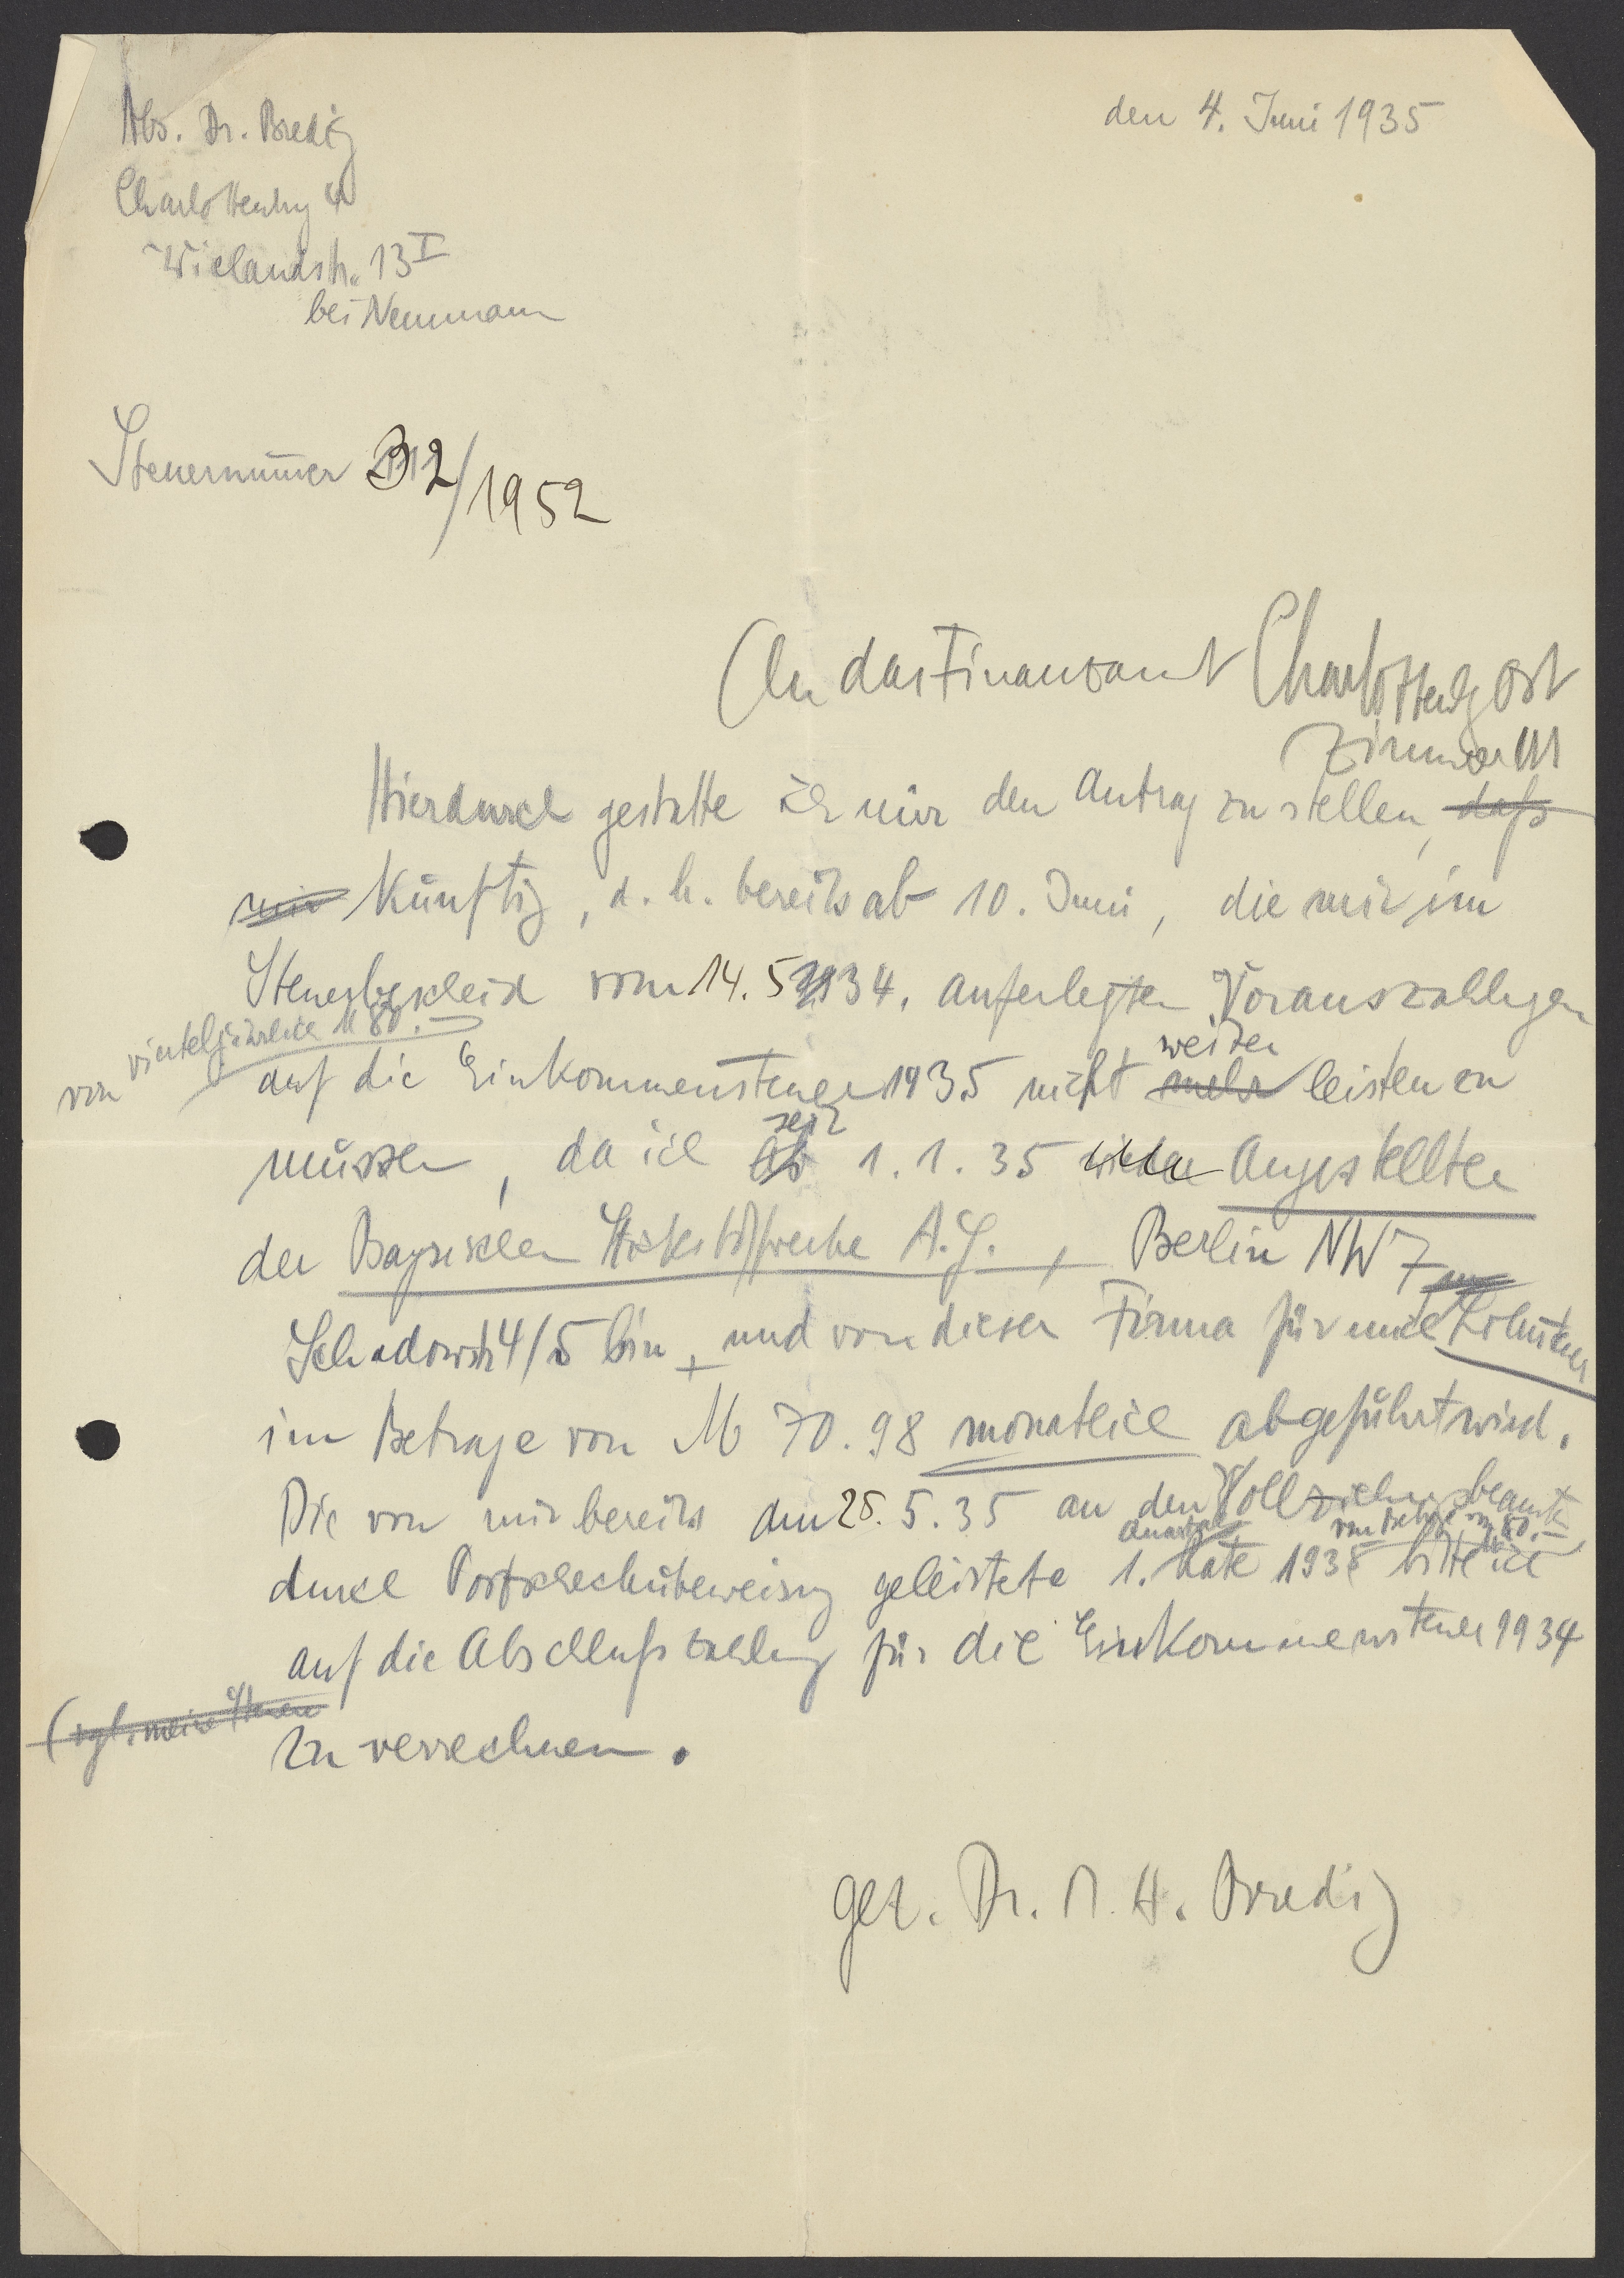 Abs. Dr. Bredig
den 4. Juni 1935
Charlottenbg 4
Wielandstr. 13 I
bei Neumann
Steuernummer B2/1952
An das Finanzamt Charlottenbg Ost
Zimmer 111
Hierdurch gestatte ich mir den Antrag zu stellen, daß
mir künftig, d. h. bereits ab 10. Juni, die mir im
Steuerbescheid vom 14. 5. 1934. auferlegten Vorauszahlungen
von vierteljährlich M 80.–
auf die Einkommensteuer 1935 nicht mehr weiter leisten zu
müssen, da ich ab seit 1. 1. 35 Angestellter
der Bayrischen Stickstoffwerke A.G., Berlin NW 7
Schadowstr 4/5 bin, und von dieser Firma für mich Lohnsteuer
im Betrage von M 70.98 monatlich abgeführt wird.
Die von mir bereits am 25. 5. 35 an den Vollziehungsbeamten
durch Postscheckübeweisung geleistete 1. Quartals Rate 1935 vom Betrage von M 80.– bitte ich
auf die Abschlußzahlung für die Einkommensteuer 1934
(vgl. meine Steuer
zu verrechnen.
gez. Dr. M. A. Bredig